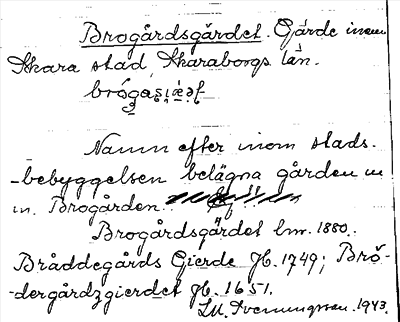 Brogårdsgärdet. Gärde inom
Skara stad, Skaraborgs län.
Namn efter inom stads-
-bebyggelsen belägna gården
Brogården.
Brogårdsgärdet lm. 1880.
Bråddegårds Gierde Jb. 1749; Brö-
-dergårdzgierdet Jb. 1651.
1943.